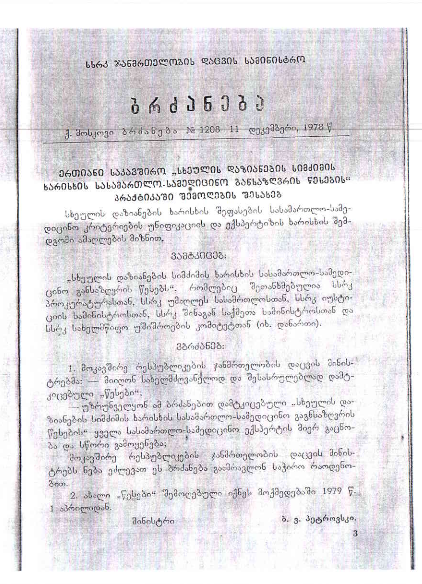 სსრკ ჯანმრთელობის დაცვის სამინისტრო
ბრძანება
ქ. მოსკოვი ბრძანება № 1208 11 დეკემბერი, 1978 წ
ერთიანი საკავშირო „სხეულის დაზიანების სიმძიმის
ხარისხის სასამართლო-სამედიცინო განსაზღვრის წესების“
პრაქტიკაში შემოღების შესახებ
სხეულის დაზიანების ხარისხის შეფასების სასამართლო-სამე-
დიცინო კრიტერიების უნიფიკაციის და ექსპერტიზის ხარისხის შემ-
დგომი ამაღლების მიზნით,
ვამტკიცებ:
„სხეულის დაზიანების სიმძიმის ხარისხის სასამართლო-სამედი-
ცინო განსაზღვრის წესებს“, რომლებიც შეთანხმებულია სსრკ
პროკურატურასთან, სსრკ უმაღლეს სასამართლოსთან, სსრკ იუსტი-
ციის სამინისტროსთან, სსრკ შინაგან საქმეთა სამინისტროსთან და
სსრკ სახელმწიფო უშიშროების კომიტეტთან (იხ. დანართი).
ვბრძანებ:
1. მოკავშირე რესპუბლიკების ჯანმრთელობის დაცვის მინის-
ტრებმა: — მიიღონ სახელმძღვანელოდ და შესასრულებლად დამტ-
კიცებული „წესები“,
— უზრუნველყონ ამ ბრძანებით დამტკიცებული „სხეულის და-
ზიანების სიმძიმის ხარისხის სასამართლო-სამედიცინო განსაზღვრის
წესების“ ყველა სასამართლო-სამედიცინო ექსპერტის მიერ გაცნო-
ბა და სწორი გამოყენება;
მოკავშირე რესპუბლიკების ჯანმრთელობის დაცვის მინის-
ტრებს ნება ეძლევათ ეს ბრძანება გაამრავლონ საჭირო რაოდენო-
ბით.
2. ახალი „წესები“ შემოღებული იქნეს მოქმედებაში 1979 წ.
1 აპრილიდან.
მინისტრი ბ. ვ. პეტროვსკი.
3